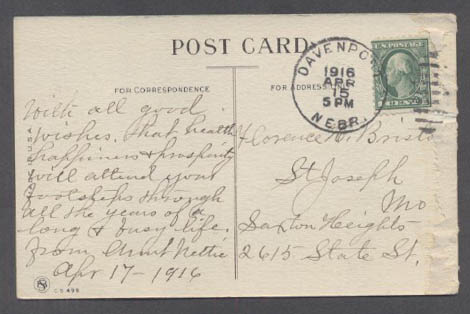 POST CARD
DAVENPORT
1916
APR
15
5 PM
NEBR.
U.S. POSTAGE
1 CENT
FOR CORRESPONDENCE
FOR ADDRESS ONLY
With all good
wishes. that health
happiness & prosperity
will attend your
footsteps through
all the years of a
long & busy life.
From Aunt Nettie
Apr 17- 1916
Florence
St Joseph
Mo
Saxton Heights
2615 State St.